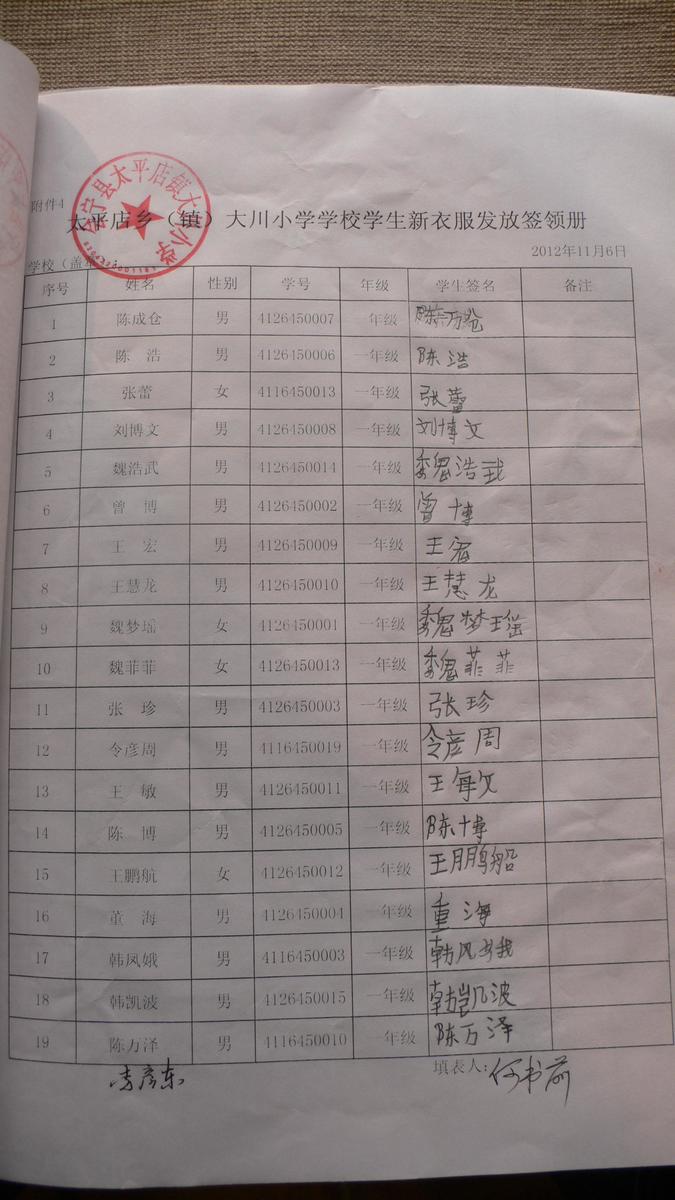 附件4
太平店乡（镇）大川小学学校学生新衣服发放签领册
2012年11月6日
学校（盖章）：
会宁县太平店镇大川小学
序号 姓名 性别 学号 年级 学生签名 备注
1 陈成仓 男 4126450007 一年级
2 陈 浩 男 4126450006 一年级 陈浩
3 张蕾 女 4116450013 一年级 张蕾
4 刘博文 男 4126450008 一年级 刘博文
5 魏浩武 男 4126450014 一年级 魏浩武
6 曾 博 男 4126450002 一年级 曾博
7 王 宏 男 4126450009 一年级 王宏
8 王慧龙 男 4126450010 一年级 王慧龙
9 魏梦瑶 女 4126450001 一年级 魏梦瑶
10 魏菲菲 女 4126450013 一年级 魏菲菲
11 张 珍 男 4126450003 一年级 张珍
12 令彦周 男 4116450019 一年级 令彦周
13 王 敏 男 4126450011 一年级 王敏
14 陈 博 男 4126450005 一年级 陈博
15 王鹏航 女 4126450012 一年级 王鹏船
16 董 海 男 4126450004 一年级 重海
17 韩凤娥 男 4116450003 一年级 韩风娥
18 韩凯波 男 4126450015 一年级 韩凯波
19 陈万泽 男 4116450010 一年级 陈万泽
李彦东 填表人：何书前